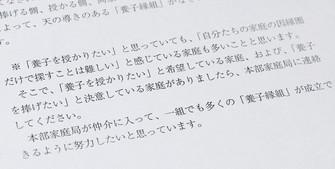 捧げる側、授かる側、両
よって、天の導きのある「養子縁組」が
※「養子を授かりたい」と思っていても、「自分たちの家庭の因縁圏
だけで探すことは難しい」と感じている家庭も多いことと思います。
そこで、「養子を授かりたい」と希望している家庭、および、「養子
を捧げたい」と決意している家庭がありましたら、本部家庭局に連絡
してください。
本部家庭局が仲介に入って、一組でも多くの「養子縁組」が成立で
きるように努力したいと思っています。